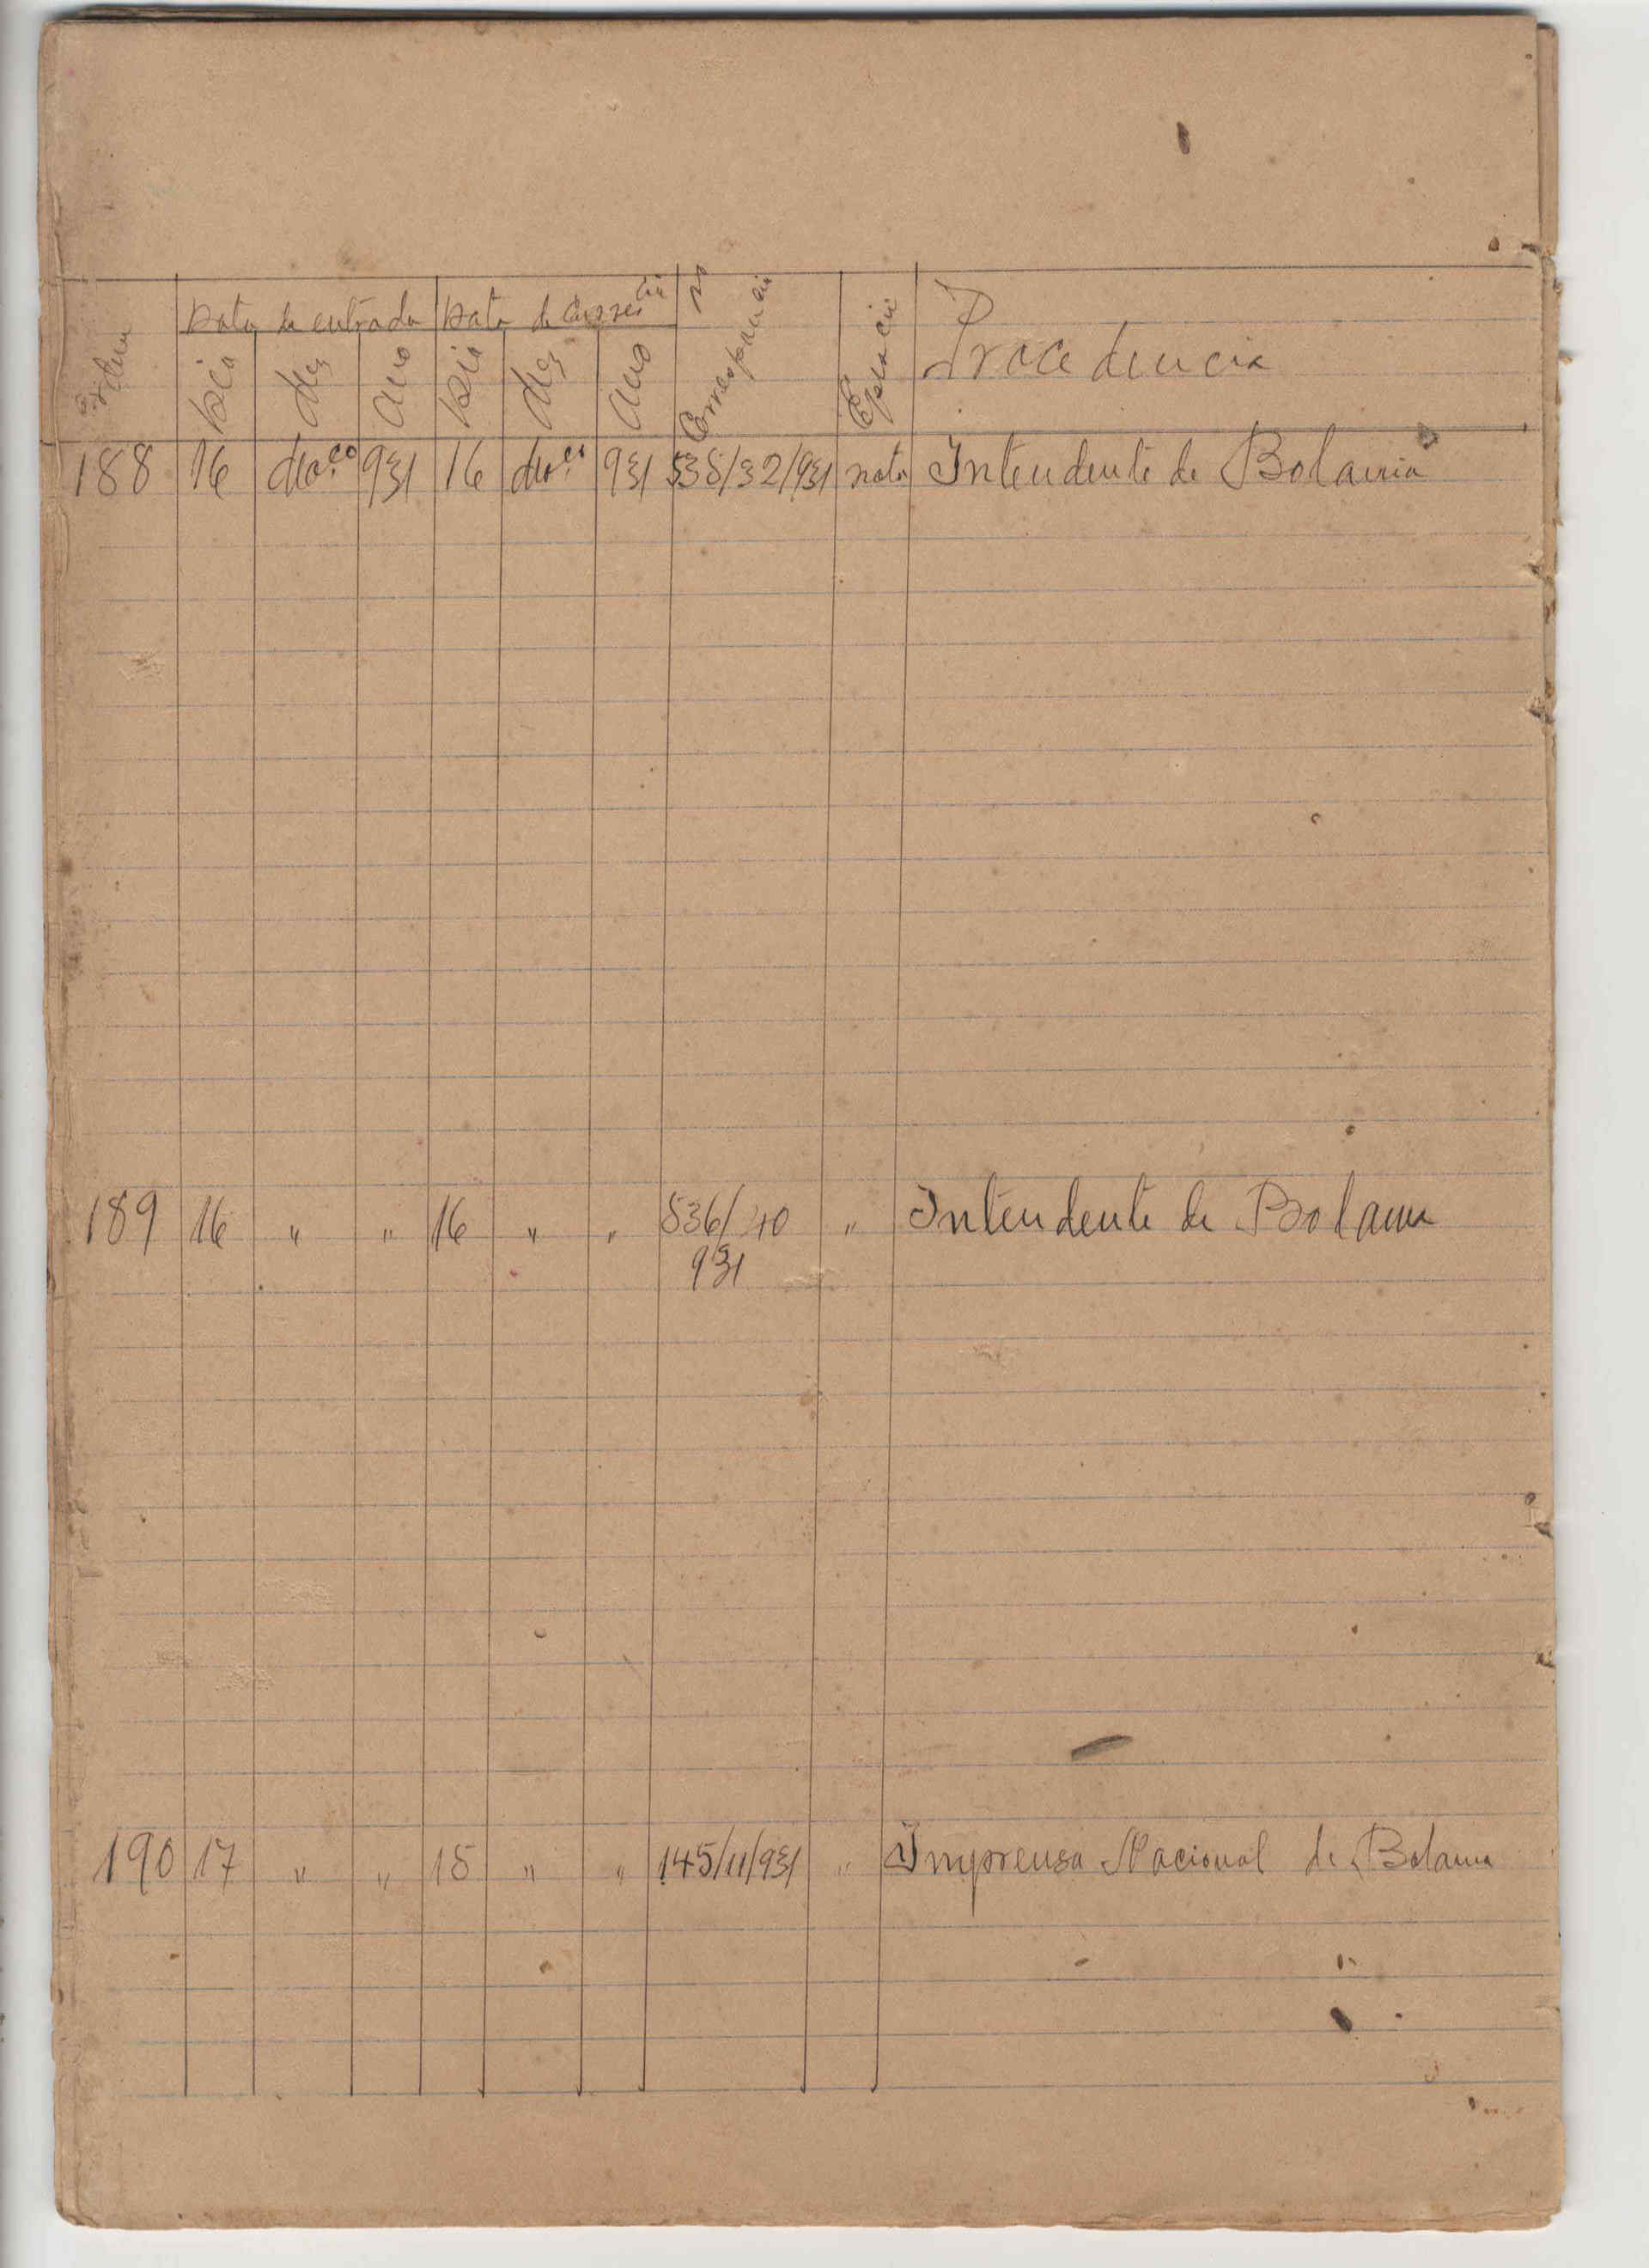 Data de entrada Data de Corres cia
Ordem Dia Mez Ano Dia Mez Ano No Correspondencia Especie Procedencia
188 16 Mço 931 16 Mço 931 535/32/931 nota Intendente de Bolama
189 16 " " 16 " " 536/40 " Intendente de Bolama
931
190 17 " " 15 " " 145/11/931 " Imprensa Nacional de Bolama